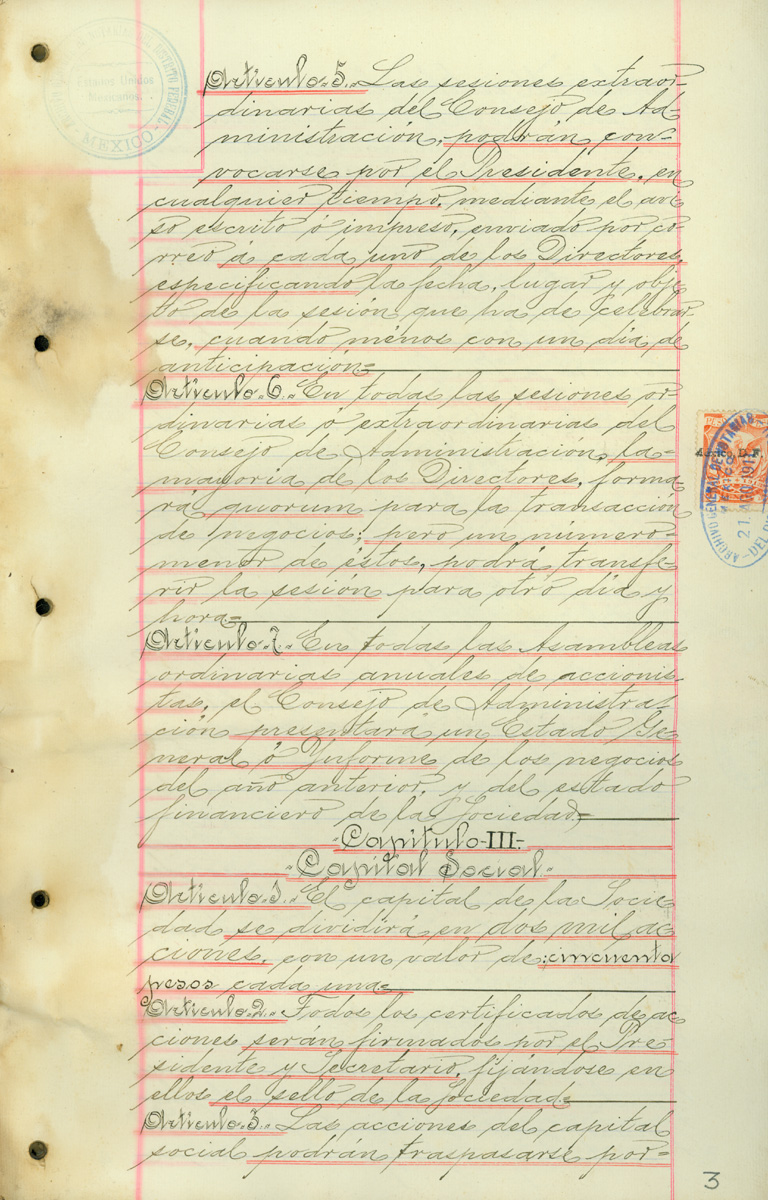 Estados Unidos
Mexicanos
DISTRITO FEDERAL
MEXICO
Artículo-5.- Las sesiones extraor-
dinarias del Consejo de Ad-
ministración, podrán con-
vocarse por el Presidente, en
cualquier tiempo, mediante el avi
so escrito ó impreso, enviado por co-
rreo á cada uno de los Directores,
especificando la fecha, lugar y obje
to de la sesión que ha de celebrar
se, cuando ménos con un día de
anticipación=
Artículo-6.- En todas las sesiones or-
dinarias ó extraordinarias del
Consejo de Administración, la=
mayoría de los Directores, forma
rá quorum para la transacción
de negocios; pero un número=
menor de éstos, podrá transfe-
rir la sesión para otro día y
hora.=
Artículo-7.- En todas las Asambleas
ordinarias anuales de accionis-
tas, el Consejo de Administra-
ción presentará un Estado Ge
neral ó Ynforme de los negocios
del año anterior, y del estado
financiero de la Sociedad=
-Capítulo-III-
-Capital Social.-
Artículo-1.- El capital de la Socie
dad se dividirá en dos mil ac
ciones, con un valor de:cincuenta
pesos cada una=
Artículo-2.- Todos los certificados de ac
ciones serán firmados por el Pre-
sidente y Secretario, fijándose en
ellos el sello de la Sociedad=
Artículo-3.- Las acciones del capital
social podrán traspasarse por-
ARCHIVO GENERAL DE NOTARIAS
21
DEL
3